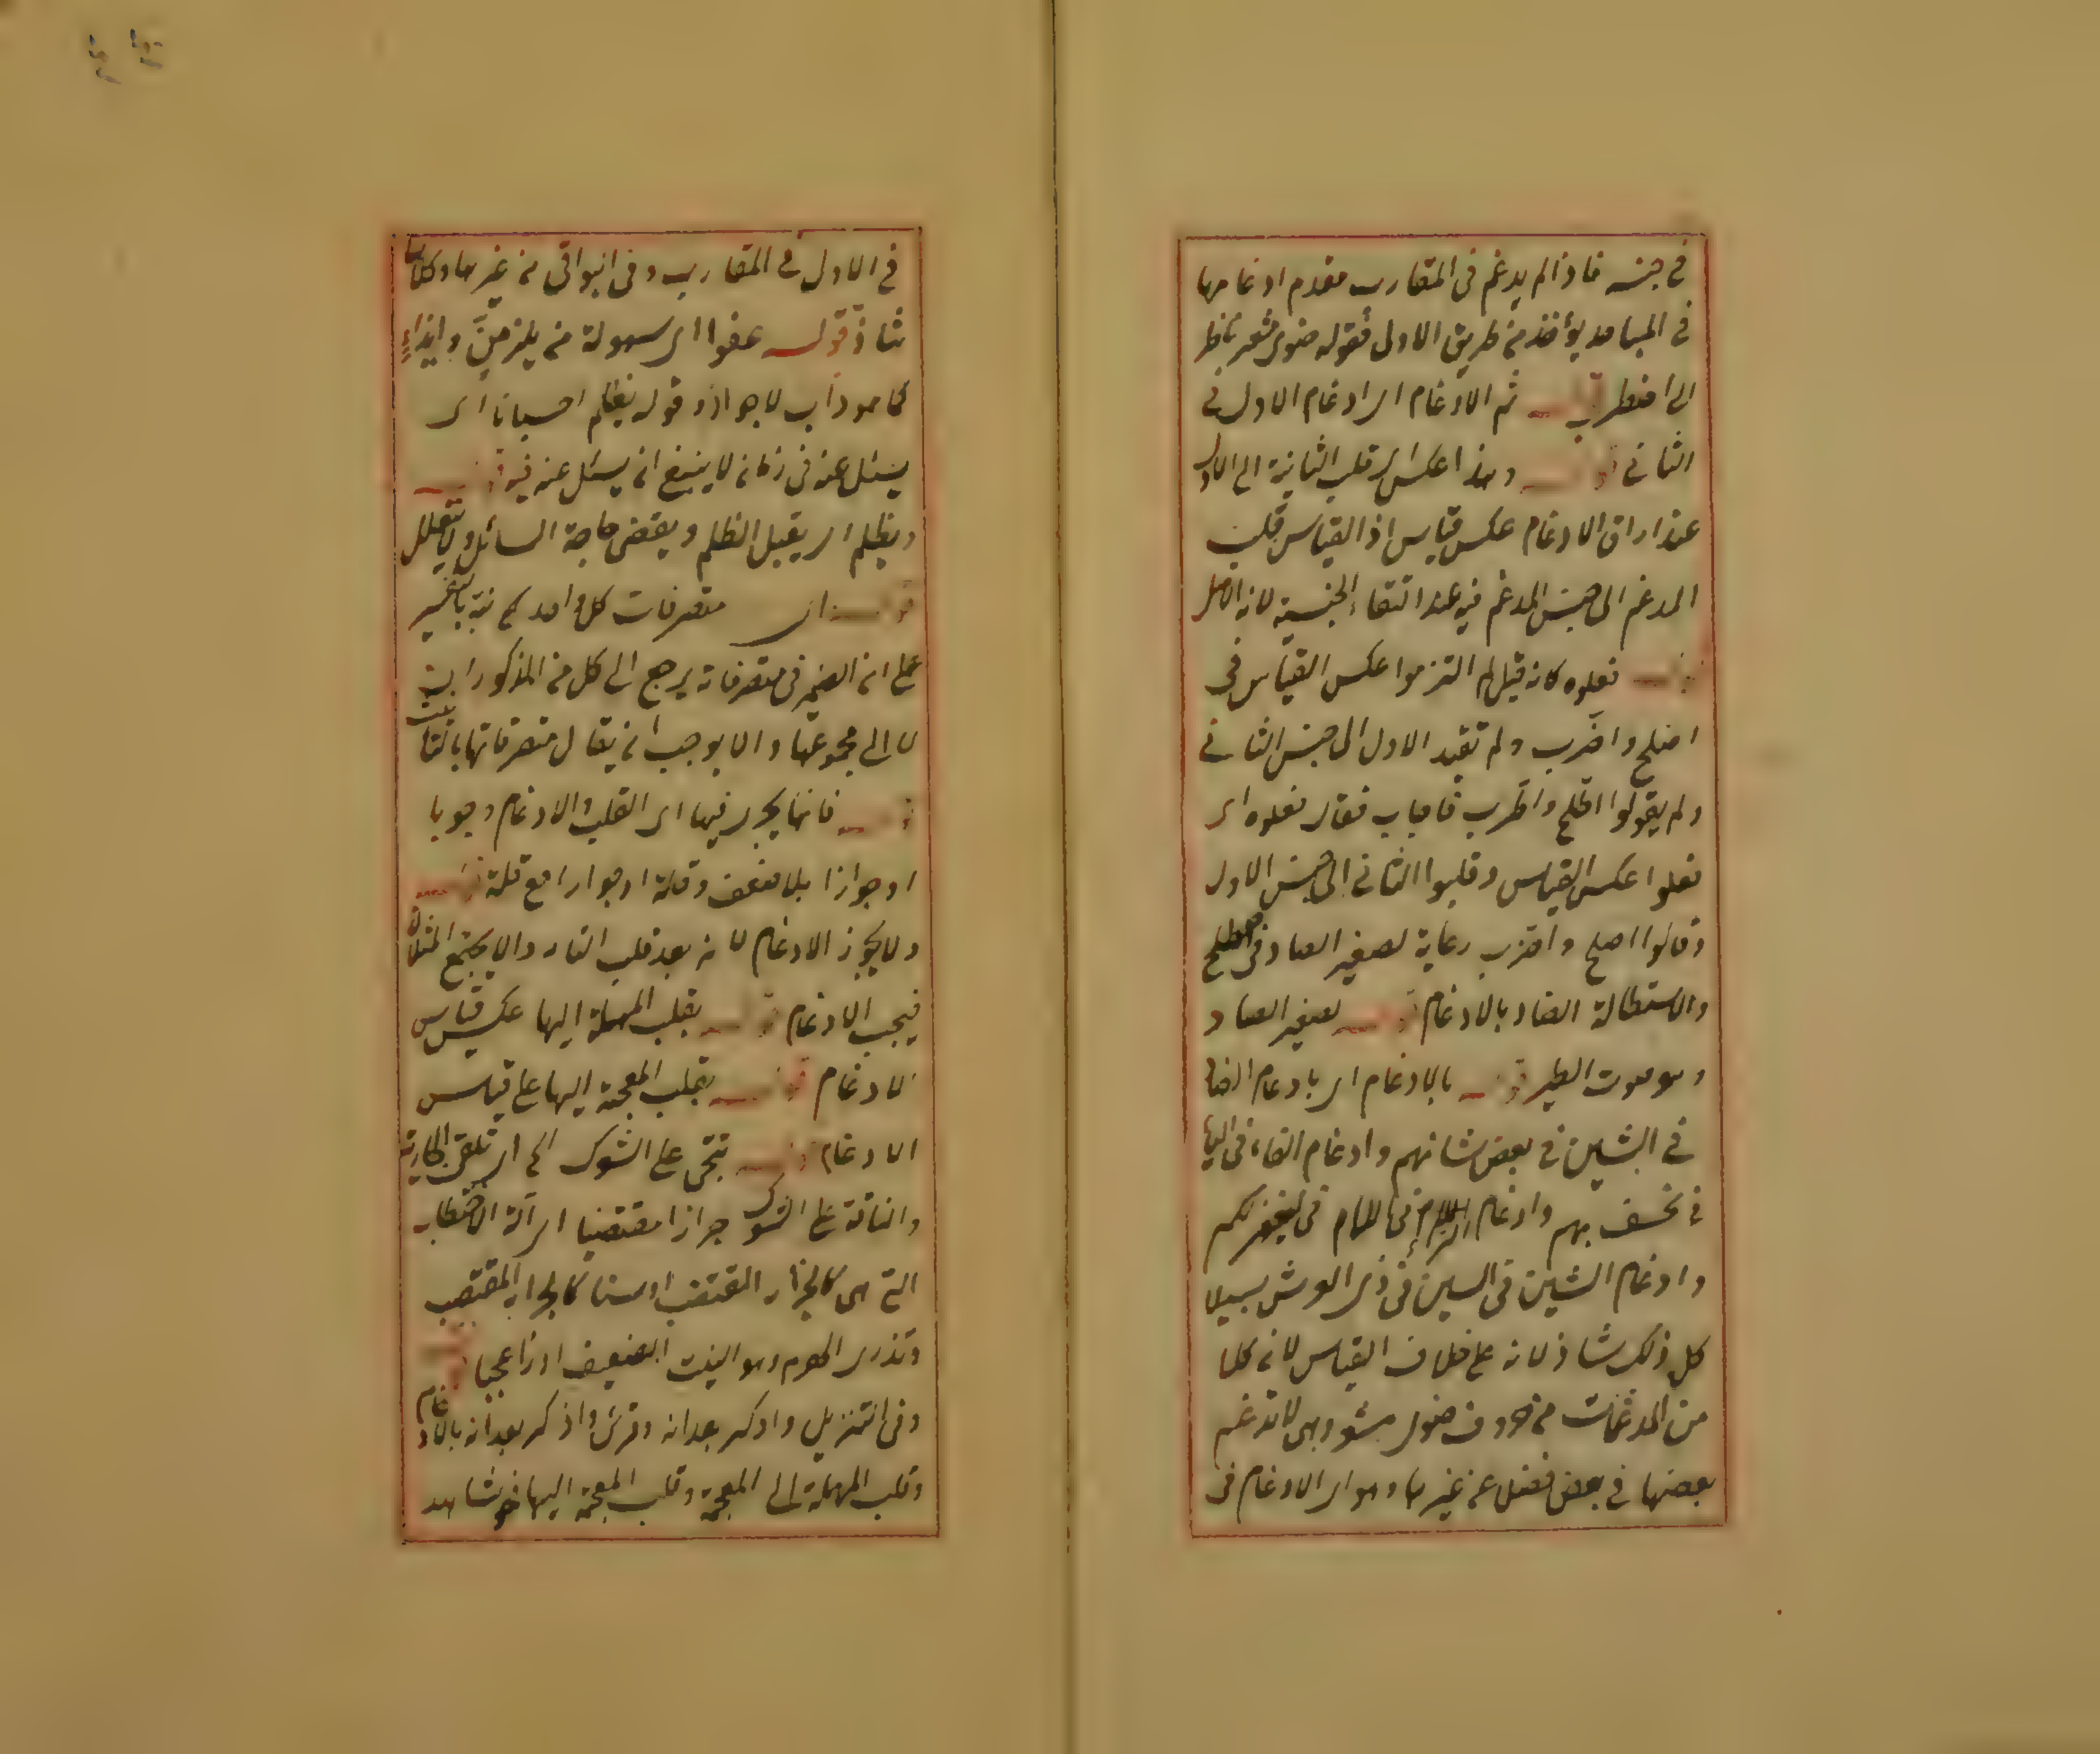 في جنسه فاذا لم يدغم في المتقارب فعدم ادغامها
في المتباعد يؤخذ من طريق الاولى فقوله ضوى مشفر ناظر
الى اضطرب قوله ثم الادغام اى ادغام الاول في
الثاني قوله وهذا عكس اى قلب الثانية الى الاول
عند ارادة الادغام عكس قياس اذ القياس قلب
المدغم الى جنس المدغم فيه عند انتفاء الجنسية لانه الاصل
قوله فعلوه كانه قيل لم التزموا عكس القياس في
اصلح واضرب ولم تقلب الاول الى جنس الثاني
ولم يقولوا اطلح واطرب فاجاب فقال فعلوه اى
فعلوا عكس القياس وقلبوا الثاني الى جنس الاول
وقالوا اصلح واضرب رعاية لصفير الصاد في اصطلح
والاستطالة الضاد بالادغام قوله لصفير الصاد
وهو صوت الطير قوله بالادغام اى بادغام الضاد
في الشين في بعض شأنهم وادغام الفاء في الباء
في نخسف بهم وادغام الراء في اللام في يغفر لكم
وادغام الشين في السين في ذى العرش سبيلا
كل ذلك شاذ لانه على خلاف القياس لان كلا
من المدغمات من حروف ضوى مشفر وهى لا تدغم
بعضها في بعض فضلا عن غيرها وهو اى الادغام في
في الاول في المتقارب وفي البواقي من غيرها وكلاهما
شاذ قوله عفوا اى سهولة من يلزمن وايذاء
كما هو دأب لاجواز وقوله يظلم احيانا اى
يسئل عنه في زمان لا ينبغ ان يسئل عنه فيه قوله
ويظلم اى يقبل الظلم ويقضى حاجة السائل ولا يتعلل
قوله اى متصرفات كل واحد نبه بالتفسير
على ان الضمير في متصرفاته يرجع الى كل من المذكورات
لا الى مجموعها والا يوجب ان يقال متصرفاتها بالتأنيث
قوله فانها يجرى فيها اى القلب والادغام وجوبا
او جوازا بلا ضعف وقلة او جوازا مع قلة قوله
ولا يجوز الادغام لانه بعد قلب التاء دالا يجتمع المثلان
فيجب الادغام قوله بقلب المهملة اليها عكس قياس
الادغام قوله بقلب المعجمة اليها على قياس
الادغام قوله تنحى على الشوك الى اى تلقى
والناقة على الشوك جرازا مقتضبا اى آلة الاقتضاب
التى هى كالجزار المقتضب او سنا كالجراز المقتضب
وتذرى الهرم وهو النبت الضعيف اذراء عجبا قوله
وفي التنزيل وادكر بعد امة وقرئ واذكر بعد امة بالادغام
وقلب المهملة الى المعجمة وقلب المعجمة اليها فهو شاهد